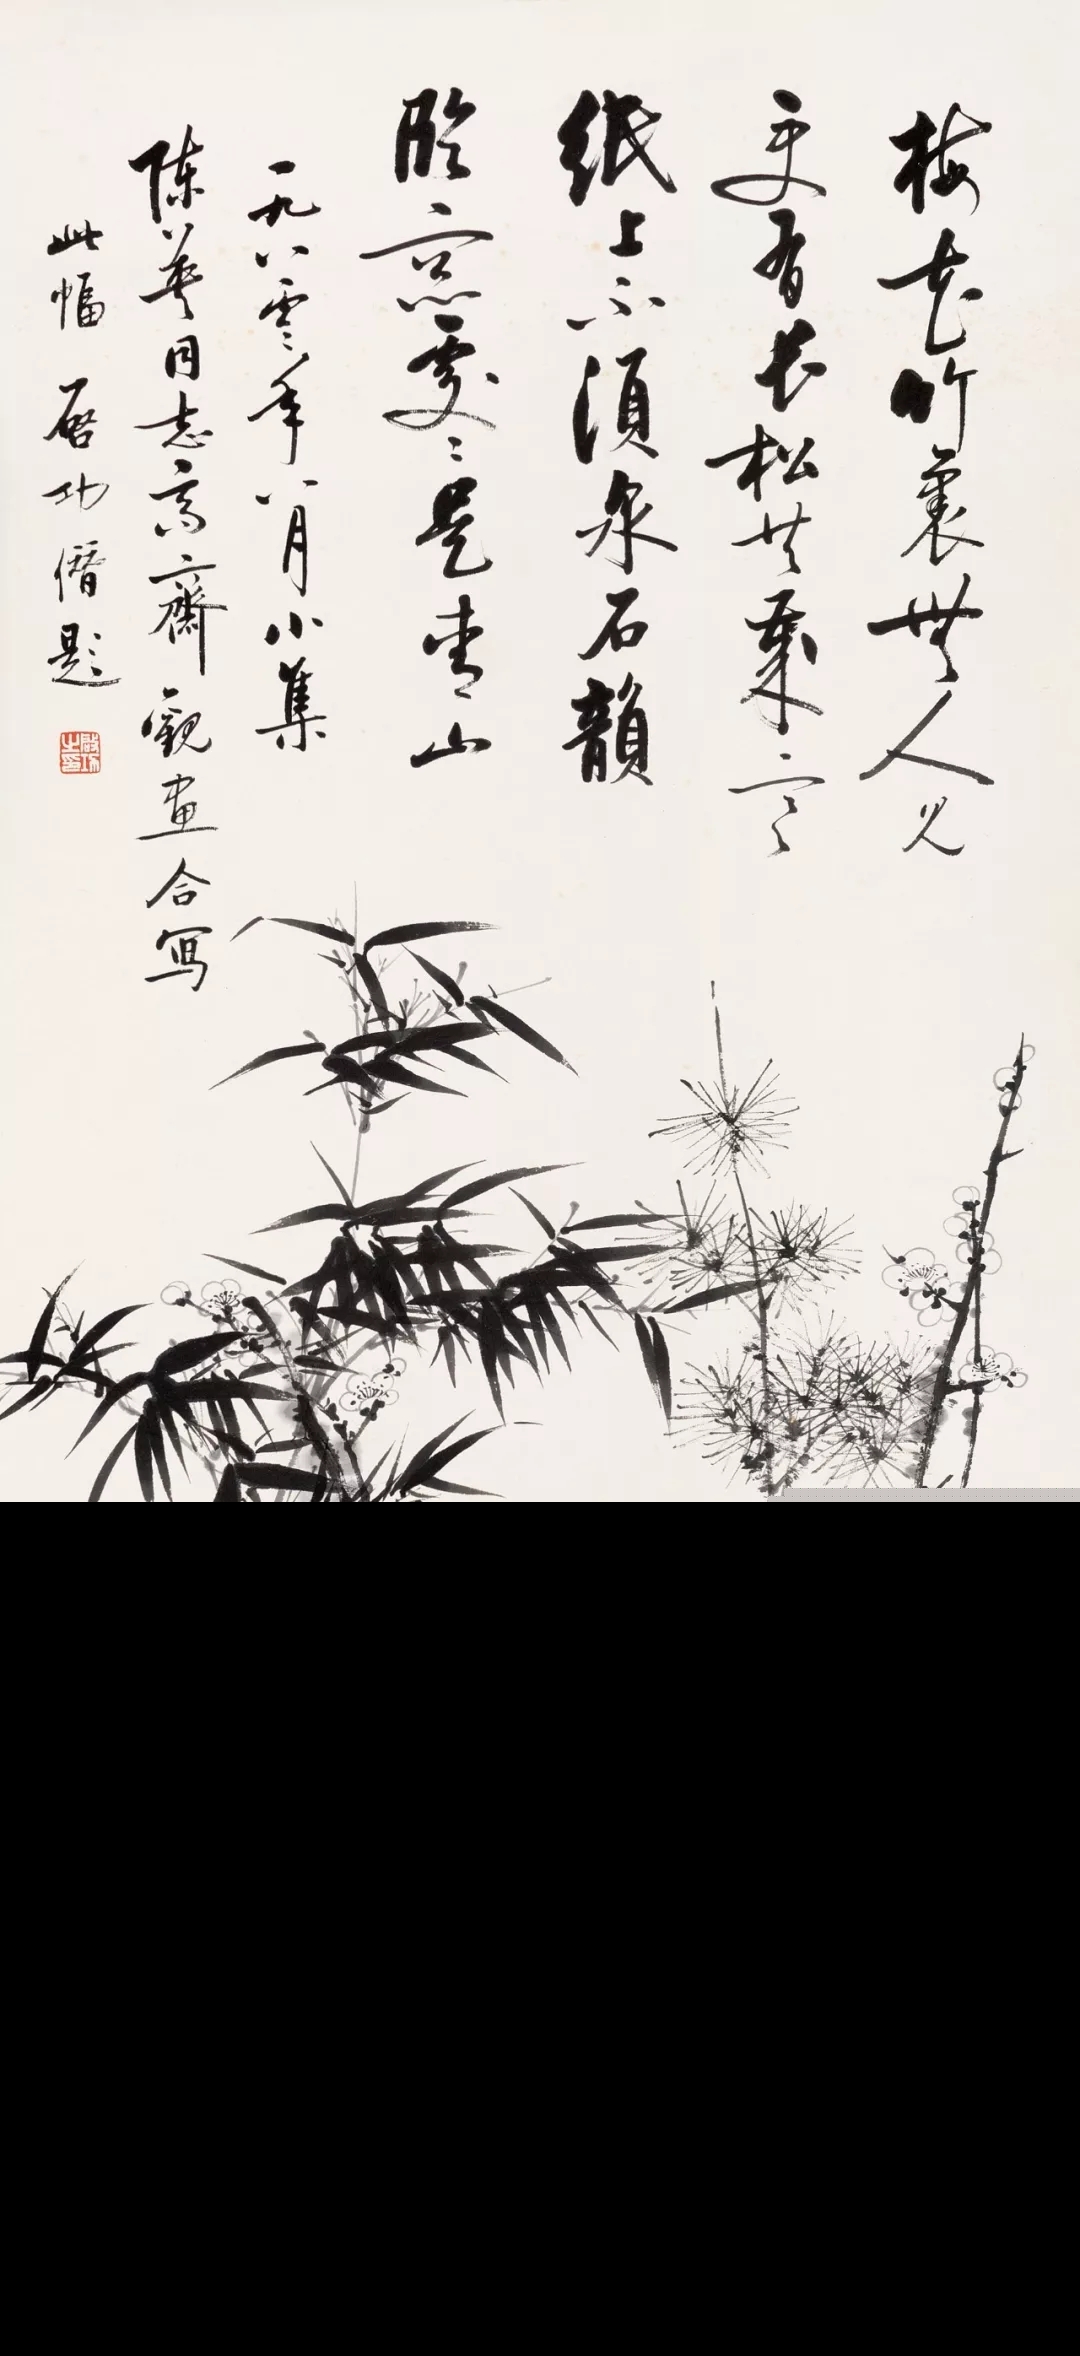 梅花竹裏無人見
更有長松共歲寒
紙上不須泉石韻
臨窗處〻是青山
一九八零年八月小集
陳英同志高齋觀畫合寫
此幅 啓功僭題
啓功之印